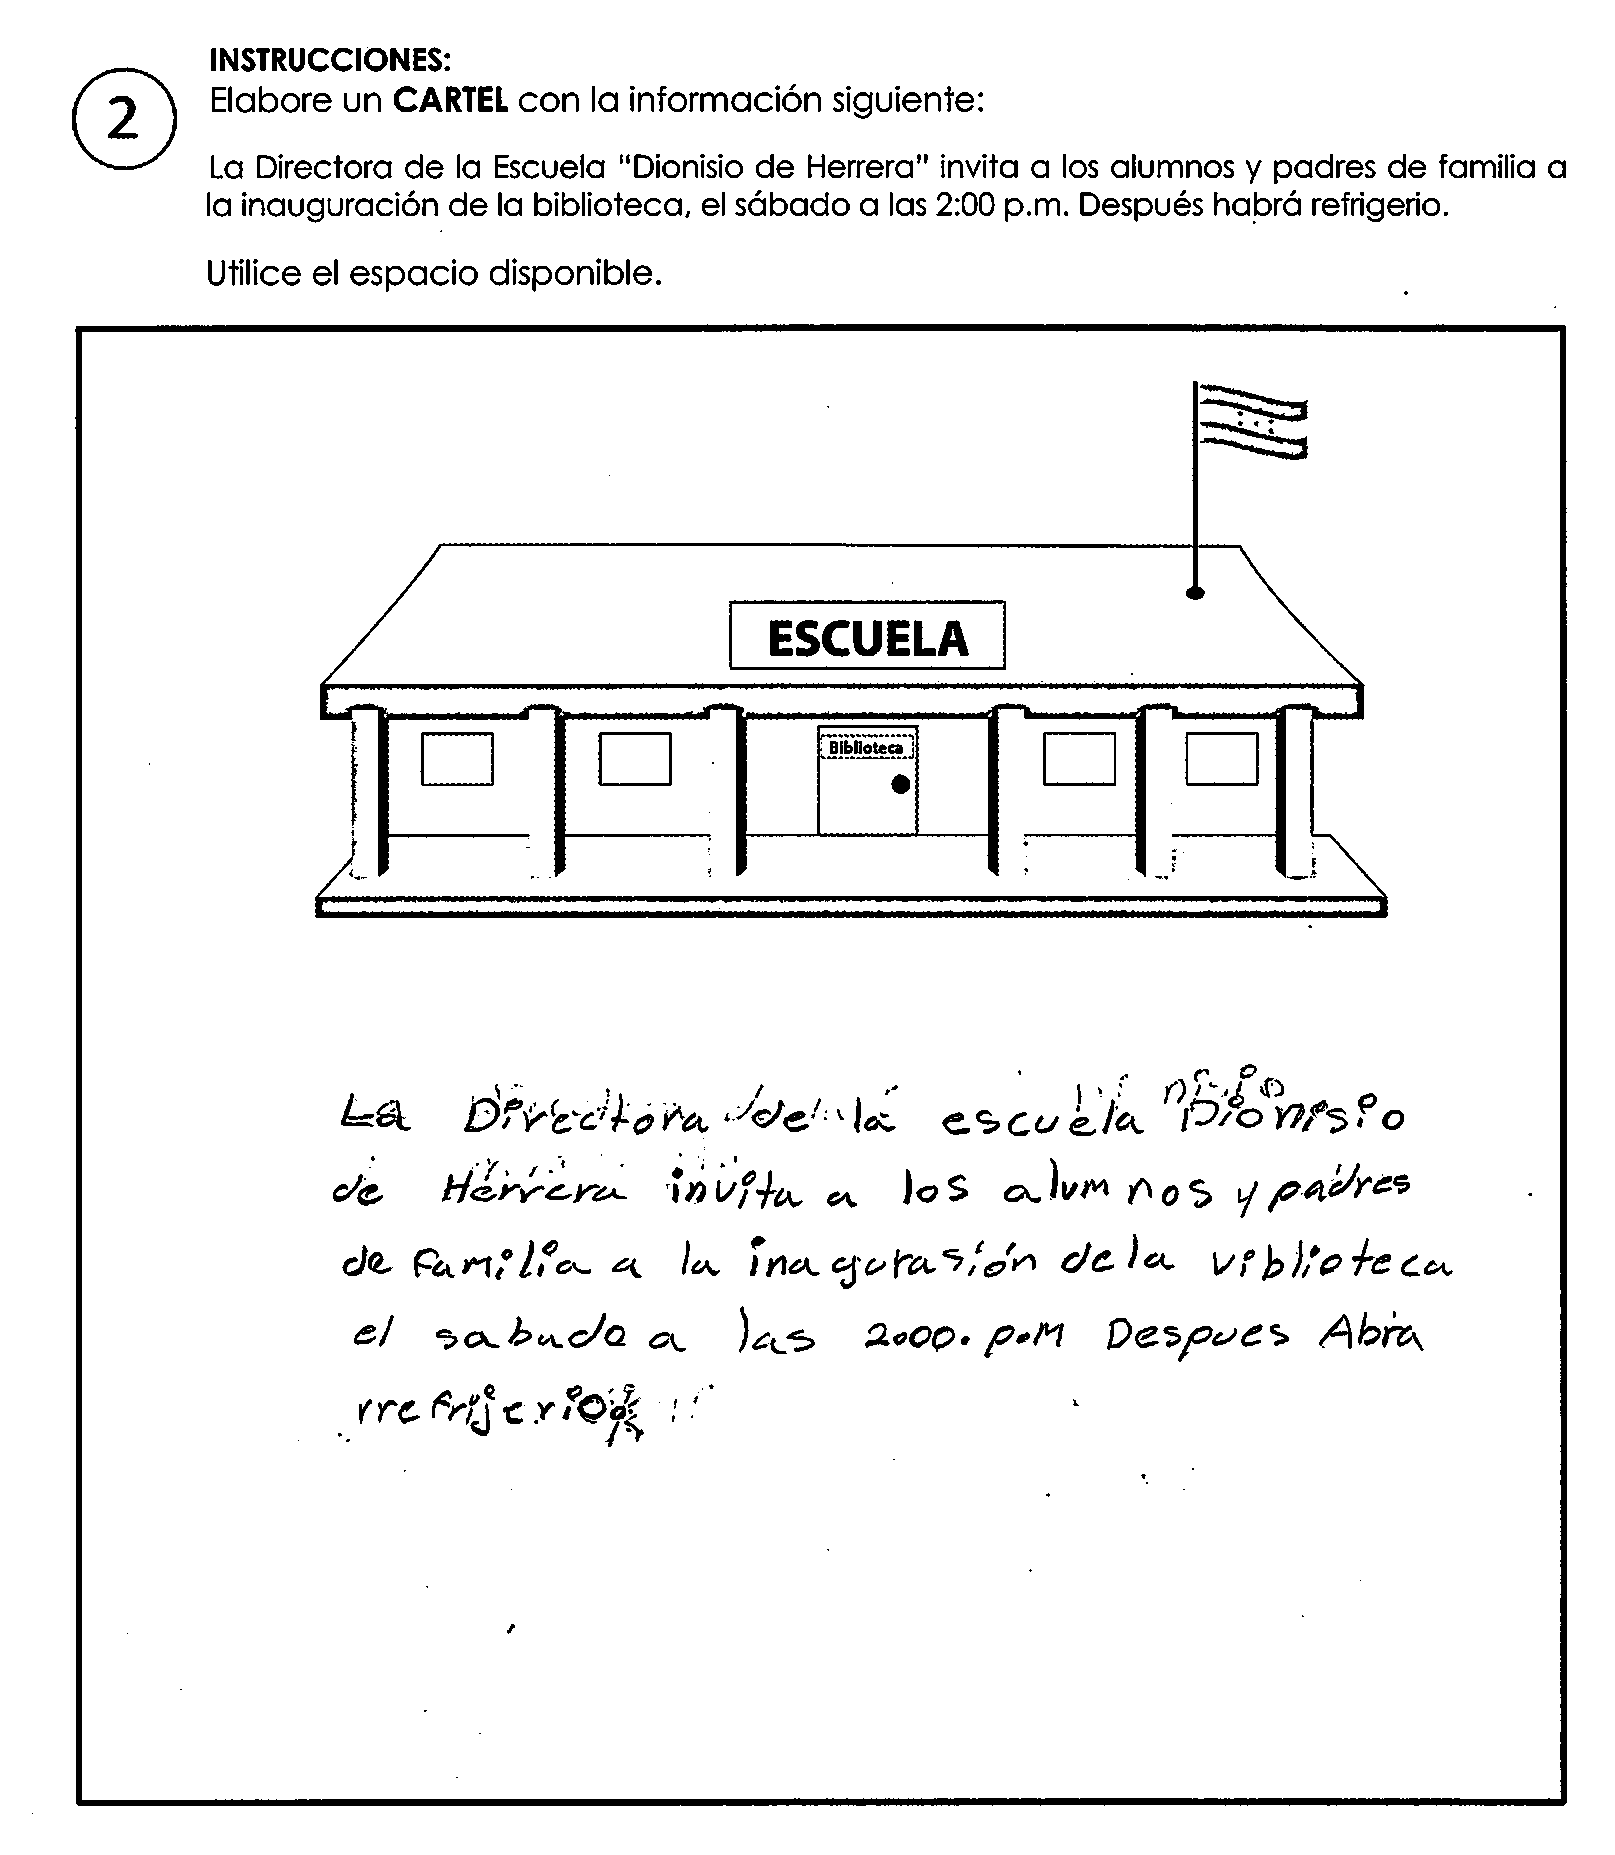 INSTRUCCIONES:
2
Elabore un CARTEL con la información siguiente:
La Directora de la Escuela "Dionisio de Herrera" invita a los alumnos y padres de familia a
la inauguración de la biblioteca, el sábado a las 2:00 p.m. Después habrá refrigerio.
Utilice el espacio disponible.
ESCUELA
Biblioteca
La Directora de la escuela "Dionisio
de Herrera invita a los alumnos y padres
de familia a la inagurasión de la viblioteca
el sabado a las 2.00. p.m Despues Abra
rrefrijerio